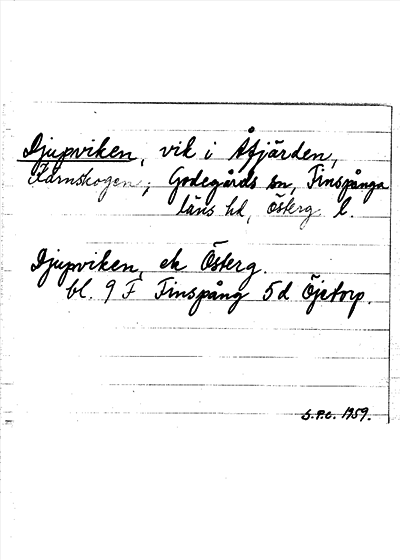 Djupviken, vik i Åfjärden,
Kärnskogen; Godegårds sn, Finspånga
läns hd, Österg. l.
Djupviken, ek Österg.
bl. 9 F Finspång 5d Öjetorp.
S.P.C. 1959.